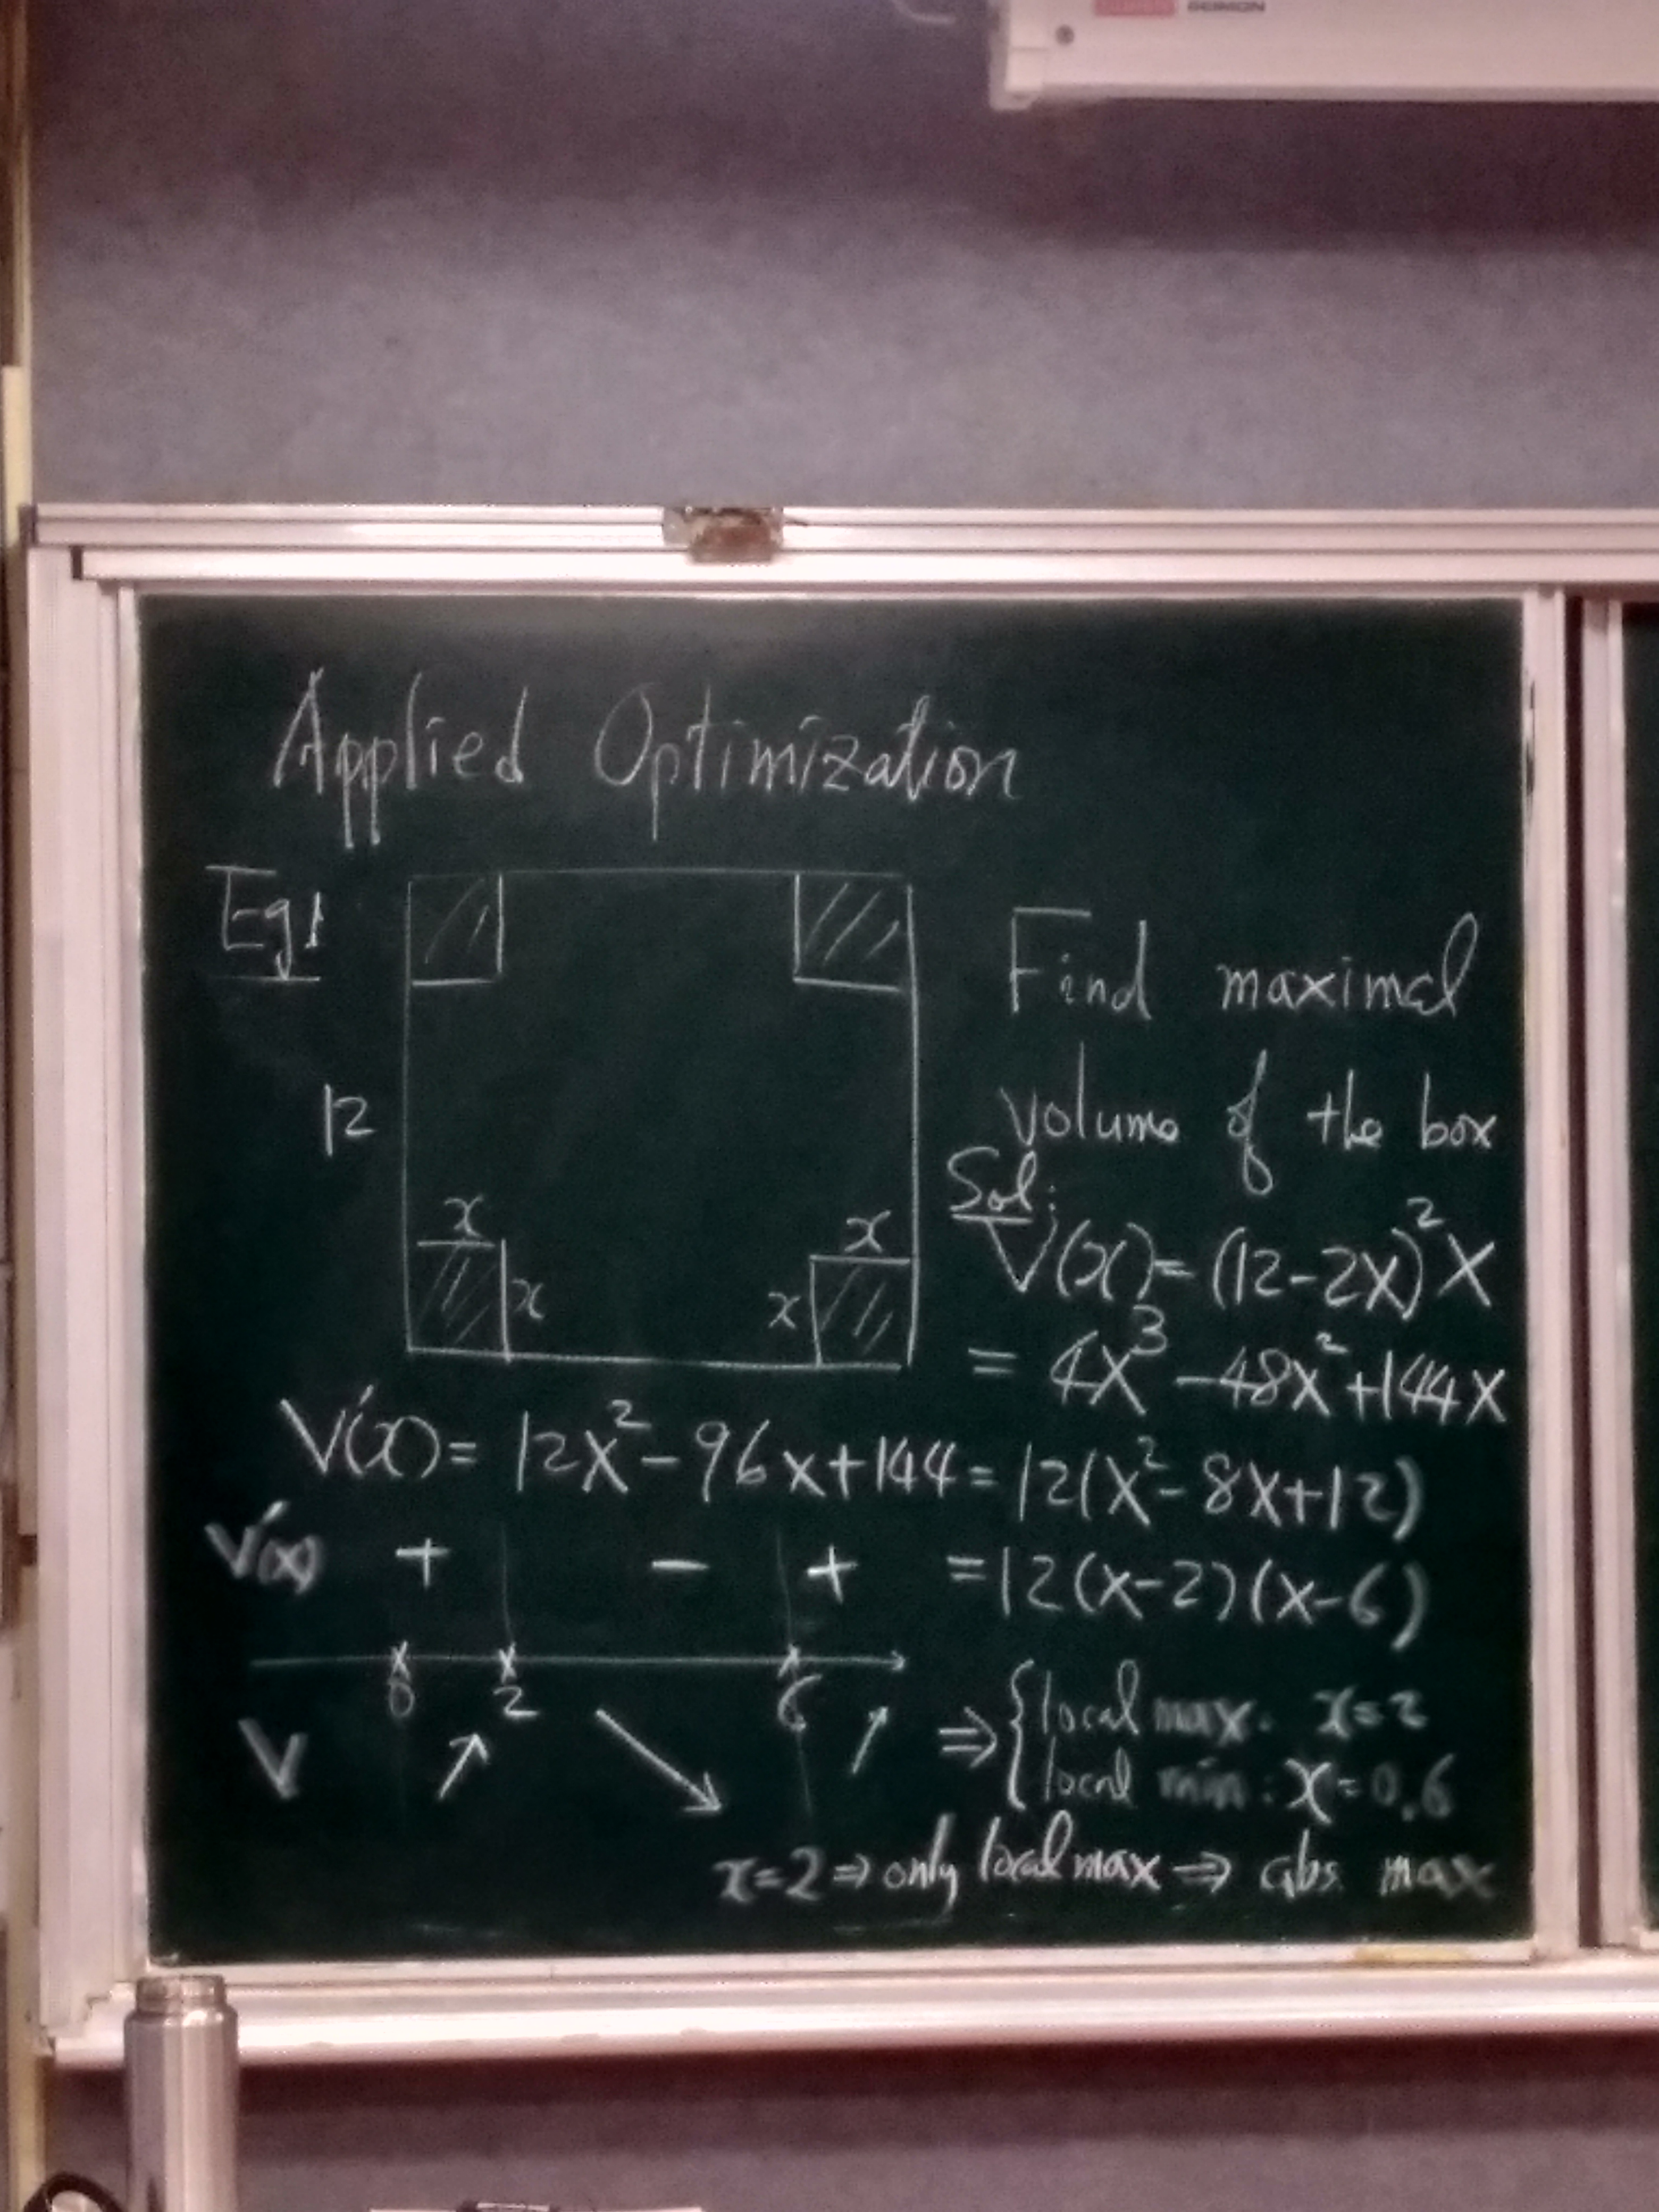 Applied Optimization
Eg1
12
x
x
x
x
Find maximal
volume of the box
Sol:
V(x) = (12-2x)²x
= 4x³ -48x²+144x
V'(x) = 12x² - 96x+144 = 12(x²- 8x+12)
=12(x-2)(x-6)
V'(x) + - +
0 2 6
V ↗ ↘ ↗
⇒ { local max. x=2
local min: x=0,6
x=2 ⇒ only local max ⇒ abs max